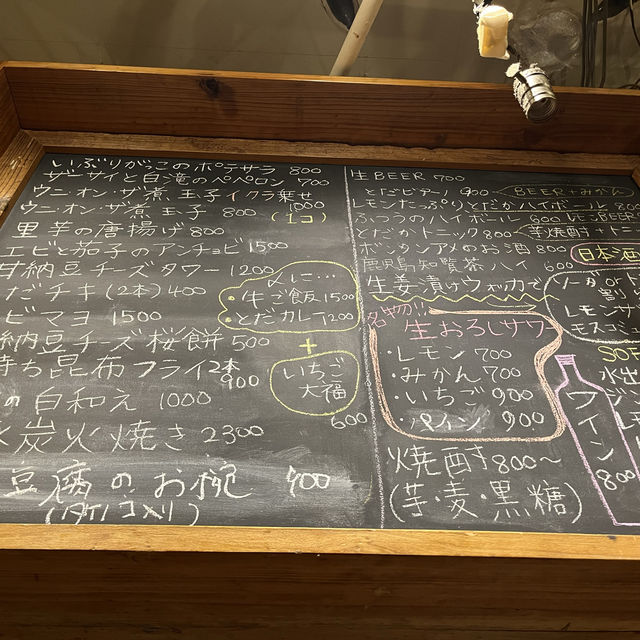 いぶりがっこのポテサラ 800
ザーサイと白滝のペペロン 700
ウニ・オン・ザ・煮玉子イクラ乗せ
ウニ・オン・ザ・煮玉子 800 (1コ)
里芋の唐揚げ 800
エビと茄子のアンチョビ 1500
甘納豆チーズタワー 1200
だチキ(2本) 400
ビマヨ 1500
納豆チーズ桜餅 500
昆布フライ 2本
900
の白和え 1000
炭火焼き 2300
豆腐のお椀 900
〆に…
・牛ご飯 1500
・とだカレー 1200
+
いちご
大福
600
生BEER 700
とだビアー 900 BEER+みかん
レモンたっぷりとだかハイボール 800
ふつうのハイボール 600
とだかトニック 800
ボンタンアメのお酒 800
鹿児島知覧茶ハイ 600
生姜漬けウォッカで
名物!!
生おろしサワ
・レモン 700
・みかん 700
・いちご 900
・パイン 900
焼酎 800〜
(芋・麦・黒糖)
日本酒
割り
レモンサ
モスコ
水出
ワイン
800